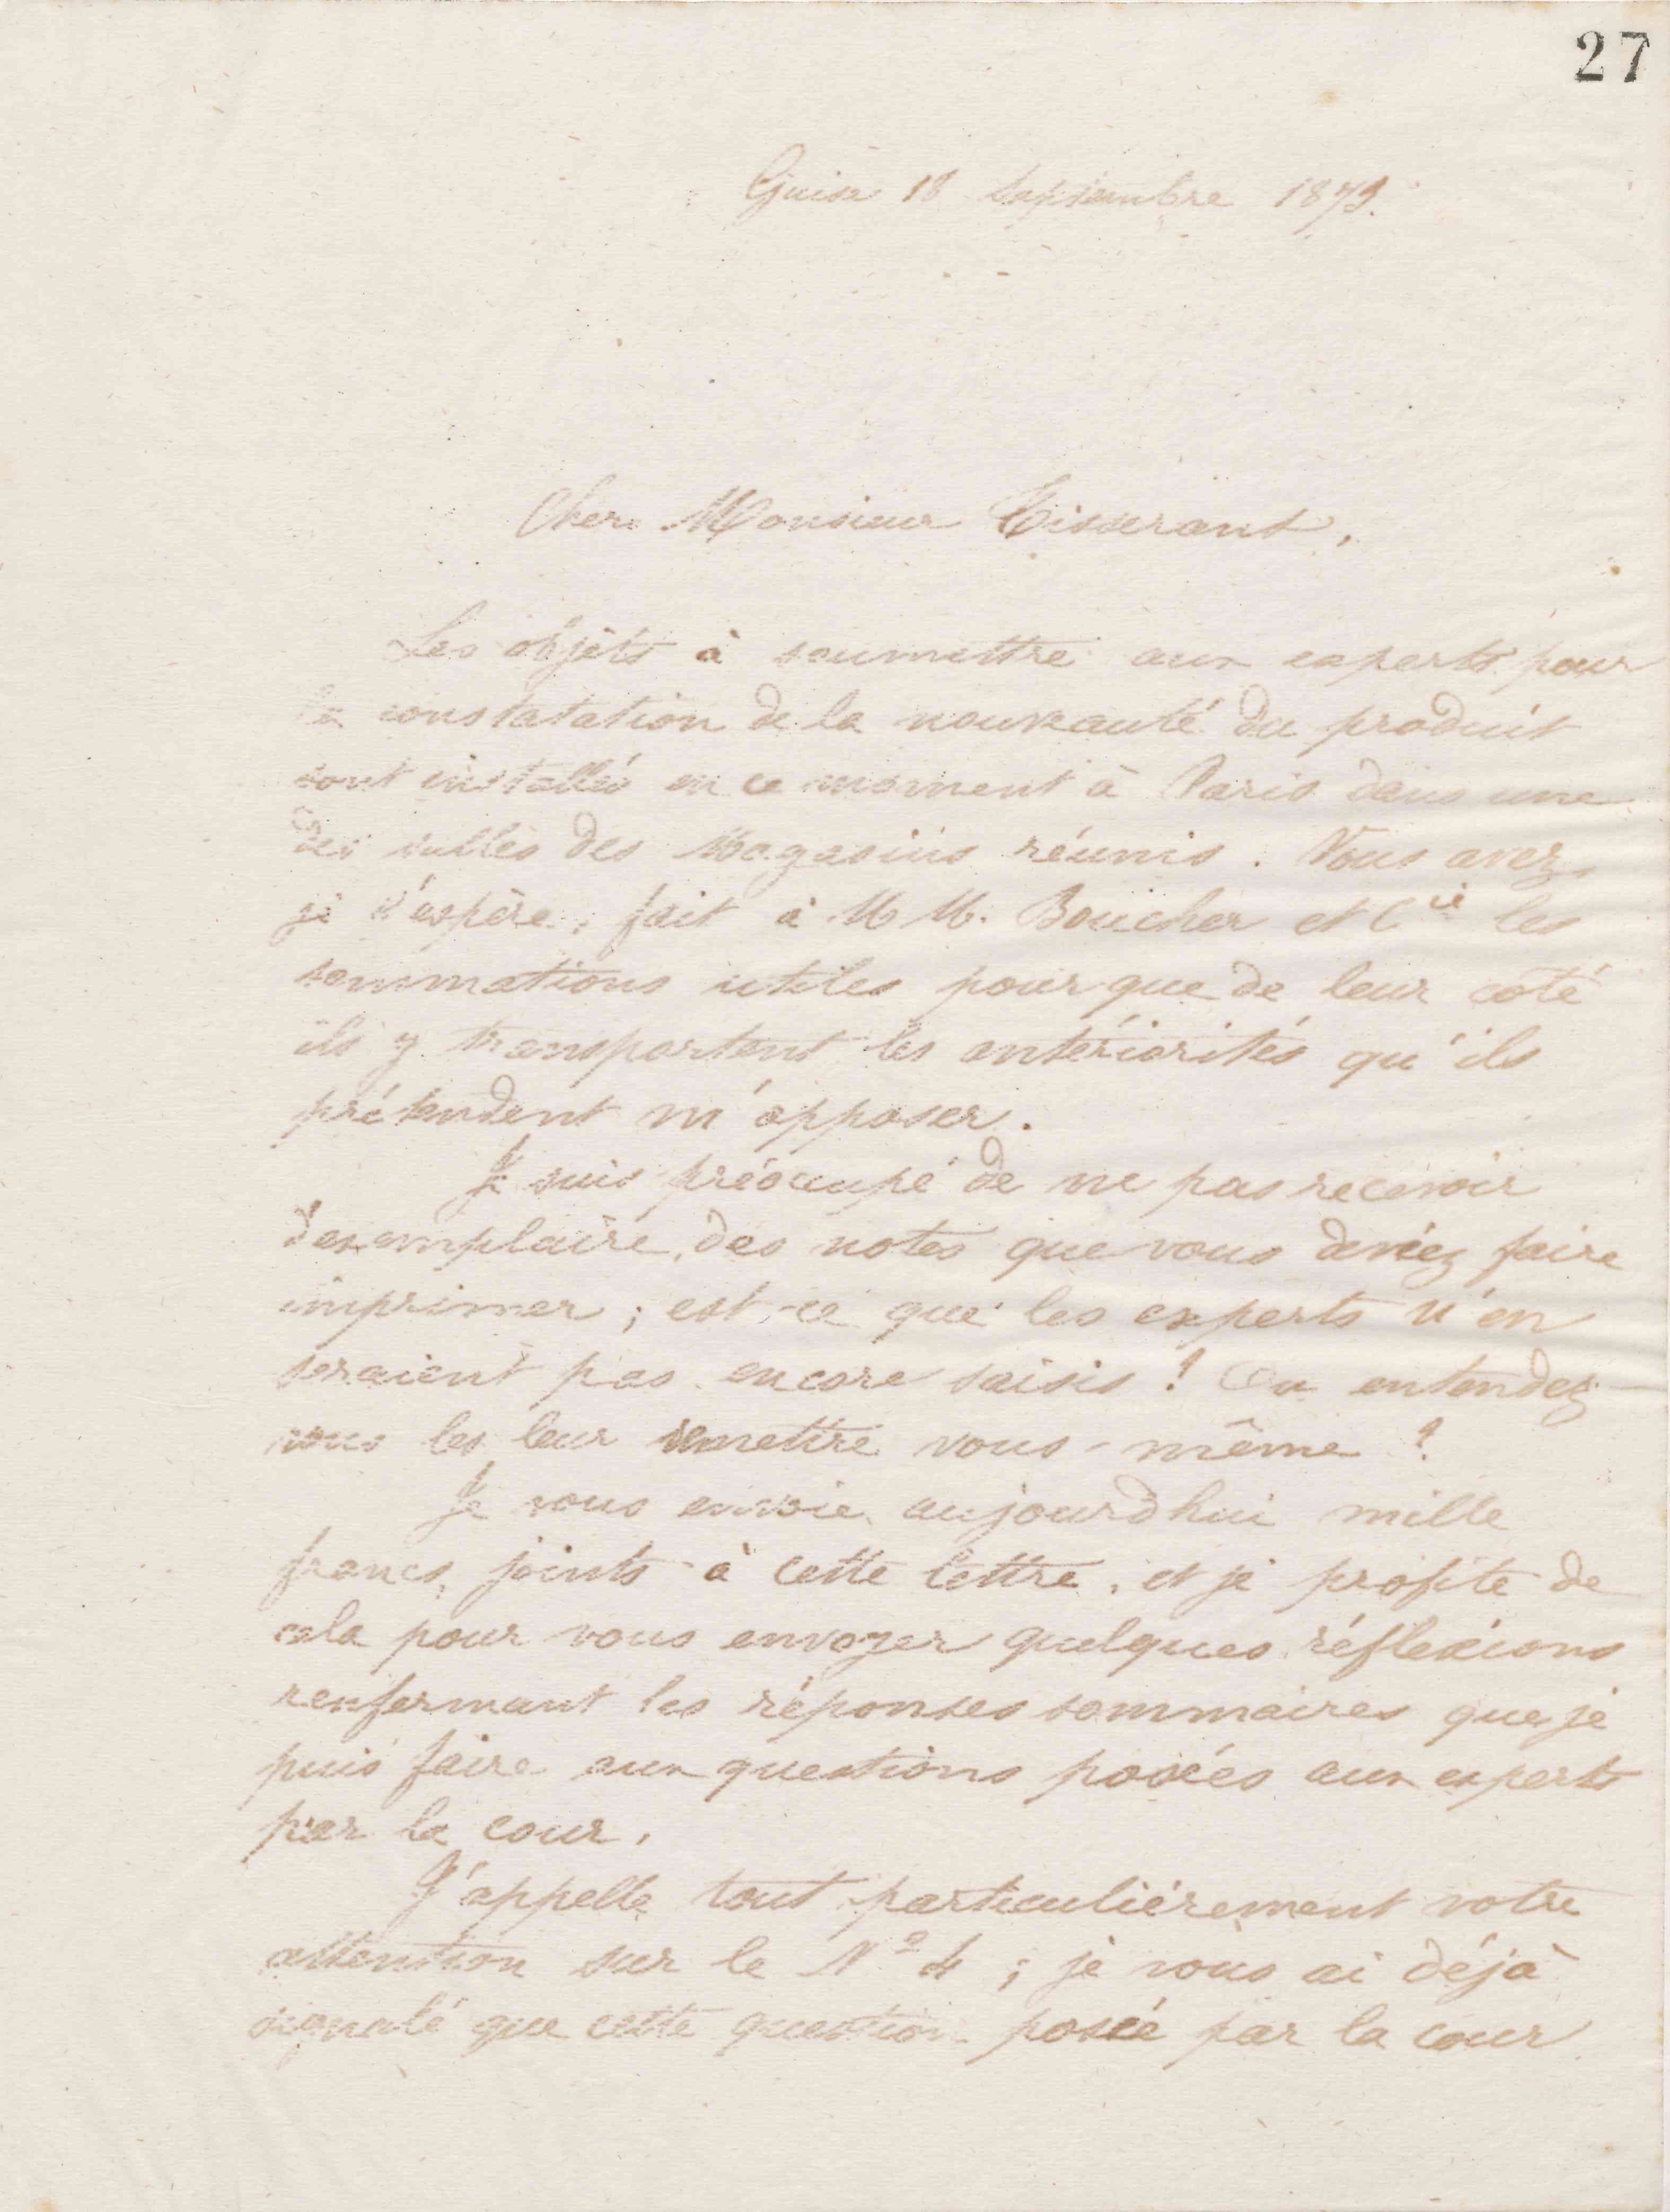 27
Guise 18 Septembre 1873.
Cher Monsieur Tisserant,
Les objèts à soumettre aux experts pour
la constatation de la nouveauté du produit
sont installés en ce moment à Paris dans une
des salles des Magasins réunis. Vous avez,
je l'espère, fait à MM. Boucher et Cie les
sommations utiles pour que de leur coté
ils y transportent les antériorités qu'ils
prétendent m'opposer.
Je suis préoccupé de ne pas recevoir
d'exemplaire, des notes que vous deviez faire
imprimer ; est-ce que les experts n'en
seraient pas encore saisis ? Ou entendez-
vous les leur remettre vous-même ?
Je vous envoie aujourd'hui mille
francs, joints à cette lettre, et je profite de
cela pour vous envoyer quelques réflexions
renfermant les réponses sommaires que je
puis faire aux questions posées aux experts
par la cour.
J'appelle tout particulièrement votre
attention sur le No 4 ; je vous ai déjà
signalé que cette question posée par la cour